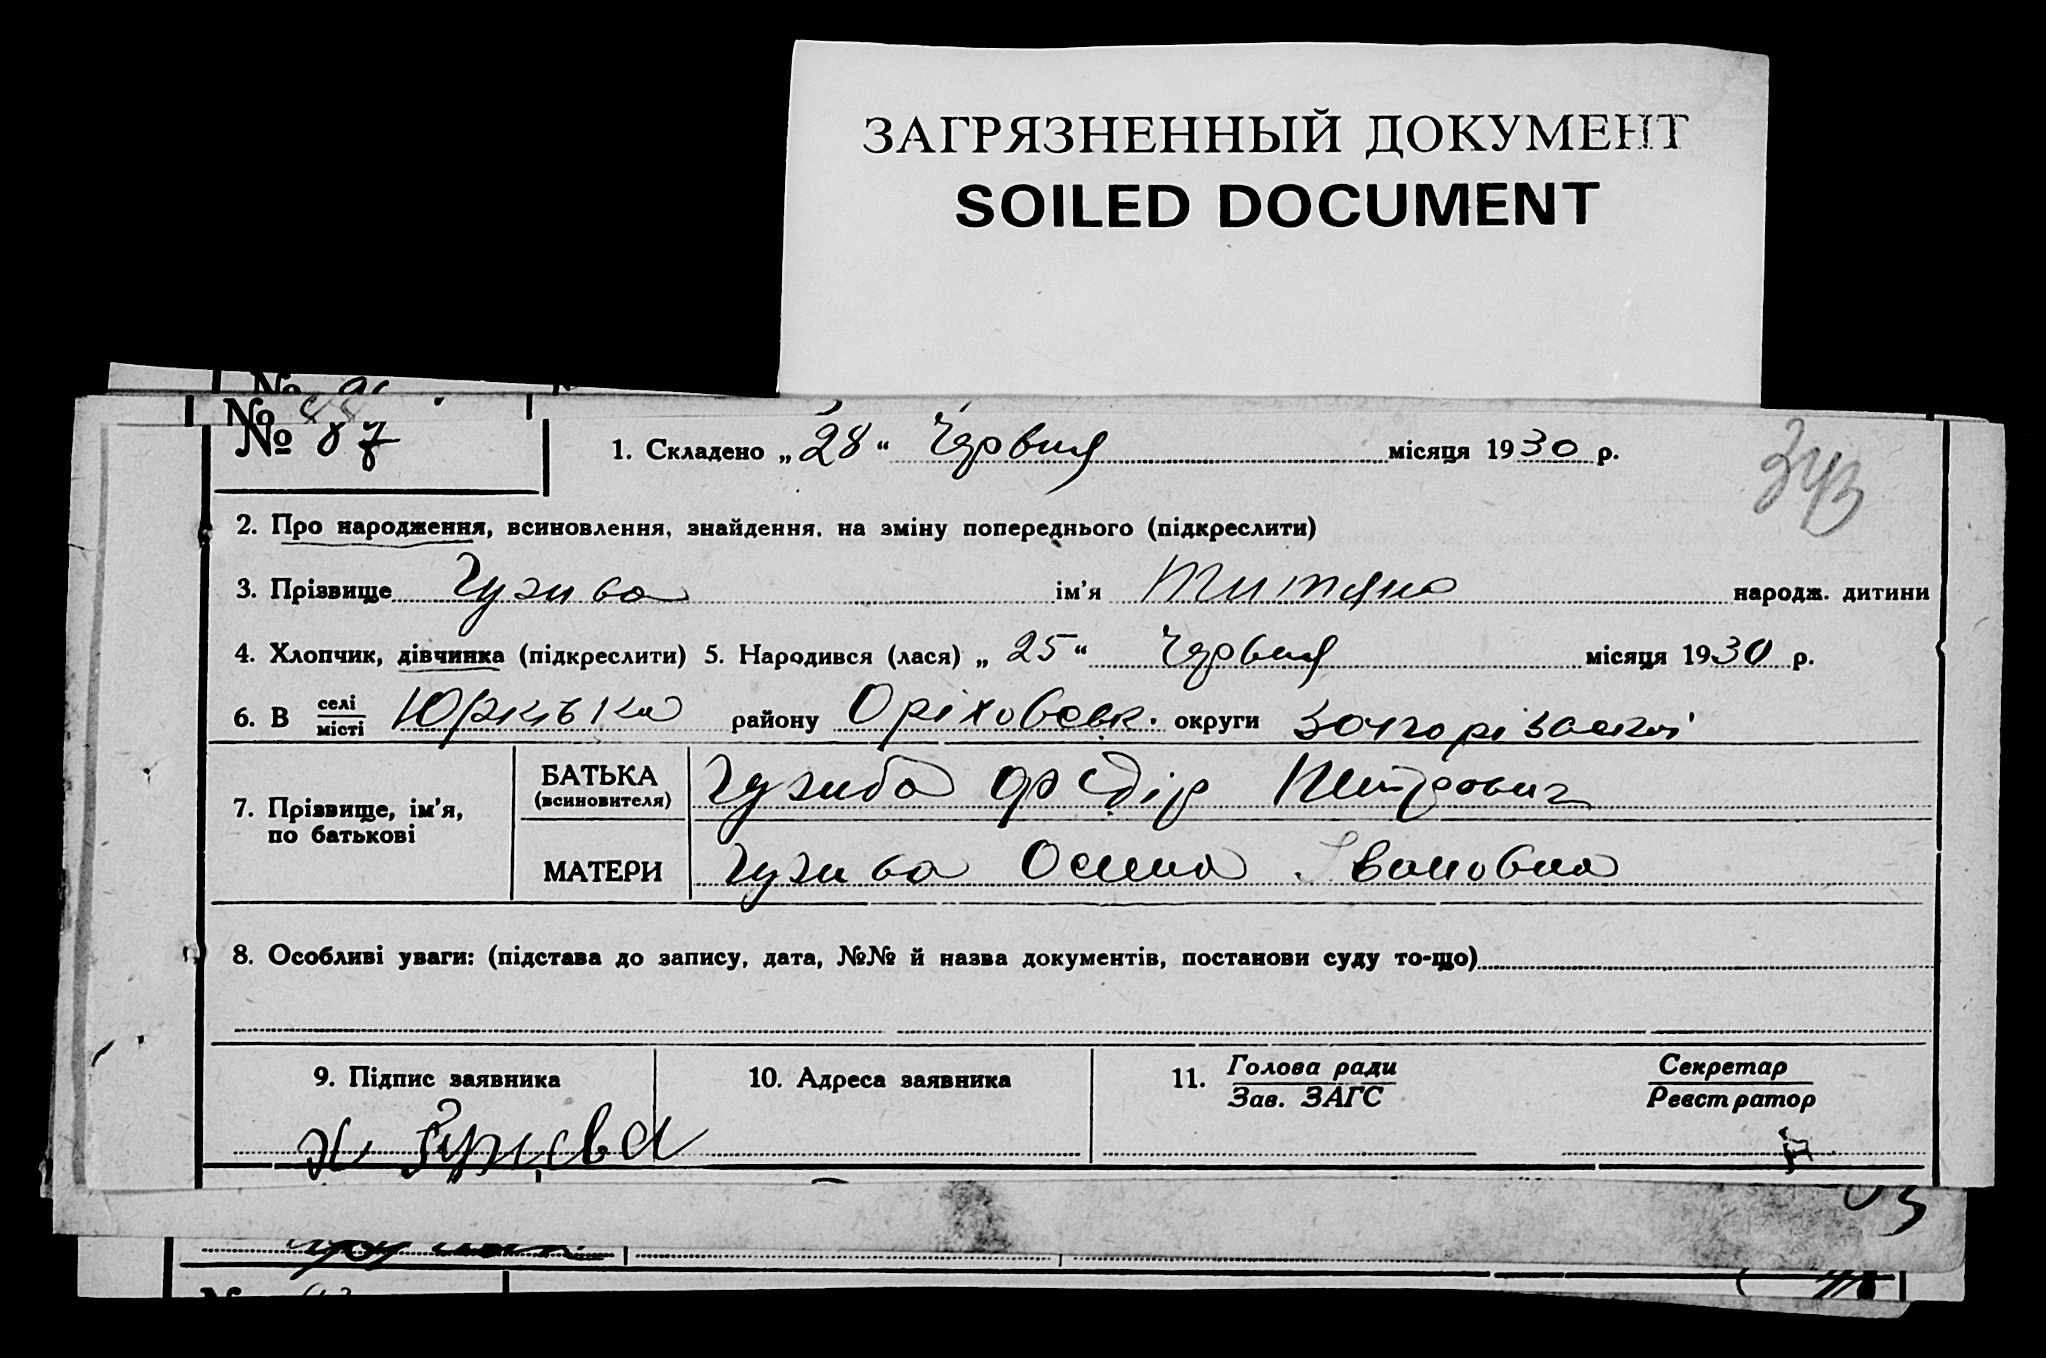 ЗАГРЯЗНЕННЫЙ ДОКУМЕНТ
SOILED DOCUMENT
№
№ 87
1. Складено „28“ Червня місяця 1930 р.
2. Про народження, всиновлення, знайдення, на зміну попереднього (підкреслити)
3. Прізвище Гузива ім'я Титяна народж. дитини
4. Хлопчик, дівчинка (підкреслити) 5. Народився (лася) „25“ Червня місяця 1930 р.
6. В селі/місті Юрківка району Оріховськ. округи
7. Прізвище, ім'я, по батькові
БАТЬКА (всиновителя) Гузива Федір Петрович
МАТЕРИ Гузива Ивановна
8. Особливі уваги: (підстава до запису, дата, №№ й назва документів, постанови суду то-що)
9. Підпис заявника
10. Адреса заявника
11. Голова ради / Зав. ЗАГС
Секретар / Реєстратор